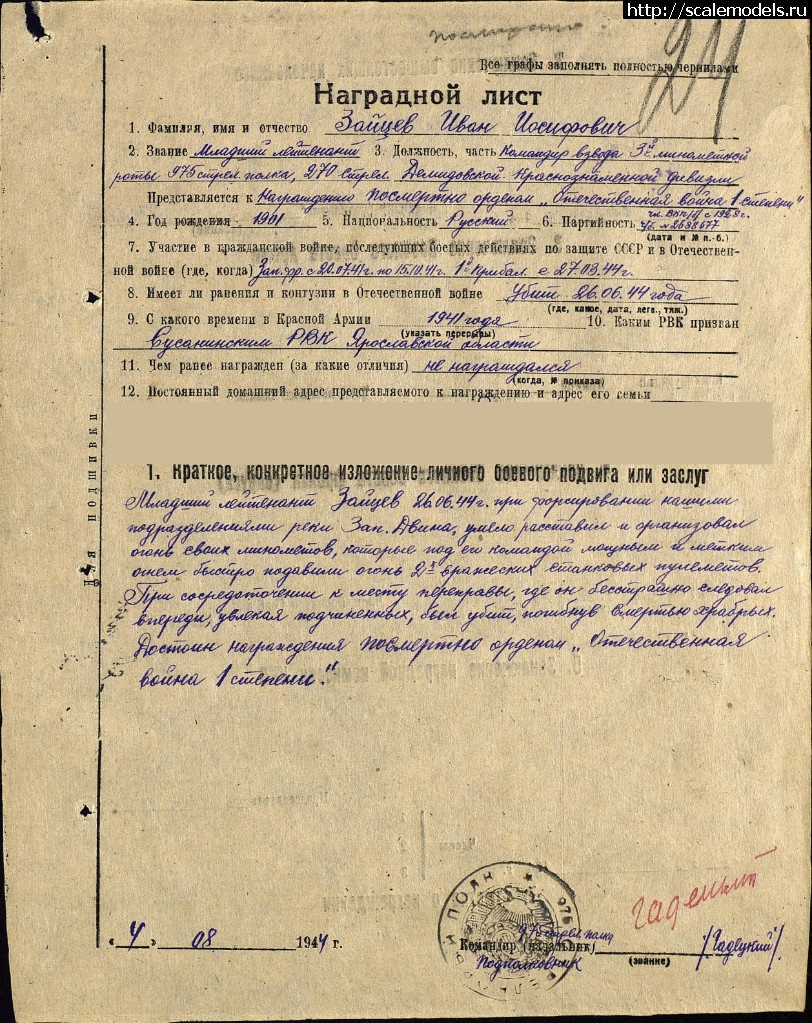 http://scalemodels.ru
посмертно
Все графы заполнять полностью чернилами
Наградной лист
1. Фамилия, имя и отчество Зайцев Иван Иосифович
2. Звание Младший лейтенант 3. Должность, часть Командир взвода 3й минометной
роты 975 стрел. полка, 270 стрел. Демидовской Краснознаменной дивизии
Представляется к Награждению посмертно орденом „Отечественная война 1 степени"
4. Год рождения 1901 5. Национальность Русский 6. Партийность чл. ВКП/б/ с 1928 г.
ч/б. №2638677
(дата и № п.-б.)
7. Участие в гражданской войне, последующих боевых действиях по защите СССР и в Отечествен-
ной войне (где, когда) Зап. фр. с 20.07.41 г. по 15.10.41 г. 1й Прибал. с 27.03.44 г.
8. Имеет ли ранения и контузии в Отечественной войне Убит 26.06.44 года
(где, какое, дата, легк., тяж.)
9. С какого времени в Красной Армии 1941 года 10. Каким РВК призван
(указать перерывы)
Сусанинским РВК Ярославской области
11. Чем ранее награжден (за какие отличия) не награждался
(когда, № приказа)
12. Постоянный домашний адрес представляемого к награждению и адрес его семьи
1. Краткое, конкретное изложение личного боевого подвига или заслуг
Младший лейтенант Зайцев 26.06.44 г. при форсировании нашими
подразделениями реки Зап. Двина, умело расставил и организовал
огонь своих минометов, которые под его командой мощным и метким
огнем быстро подавили огонь 2х вражеских станковых пулеметов.
При сосредоточении к месту переправы, где он бесстрашно следовал
впереди, увлекая подчиненных, был убит, погибнув смертью храбрых.
Достоин награждения посмертно орденом „Отечественная
война 1 степени".
Для подшивки
975 стрел. полка
„4" 08 1944 г. Командир (начальник) /Гадецкий/
Подполковник (звание)